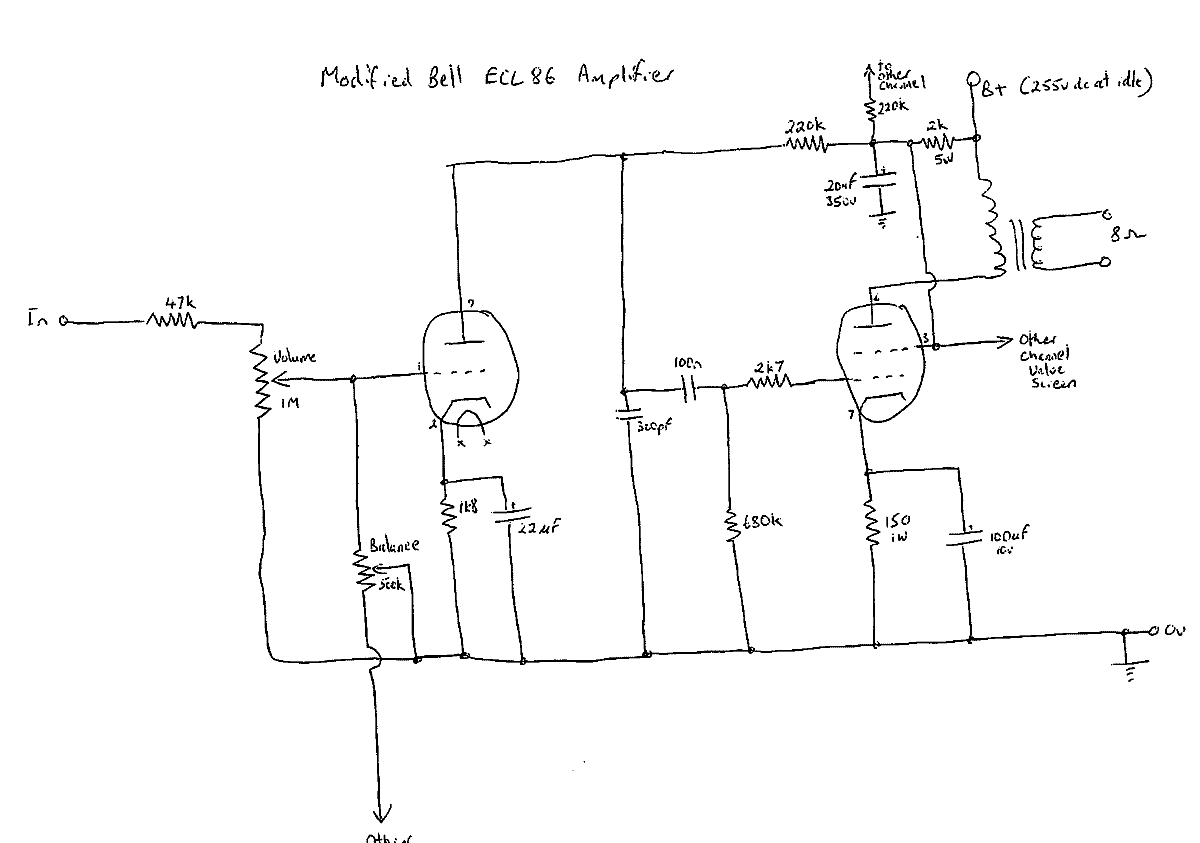 Modified Bell ECL 86 Amplifier
to
other
channel
220k
B+ (255v dc at idle)
220k
2k
5W
20uF
350v
8Ω
47k
In
Volume
1M
9
1
2
x x
1k8
22uF
Balance
500k
100n
2k7
6
3
7
Other
Channel
Valve
Screen
680k
150
1W
100uF
10v
0v
Other